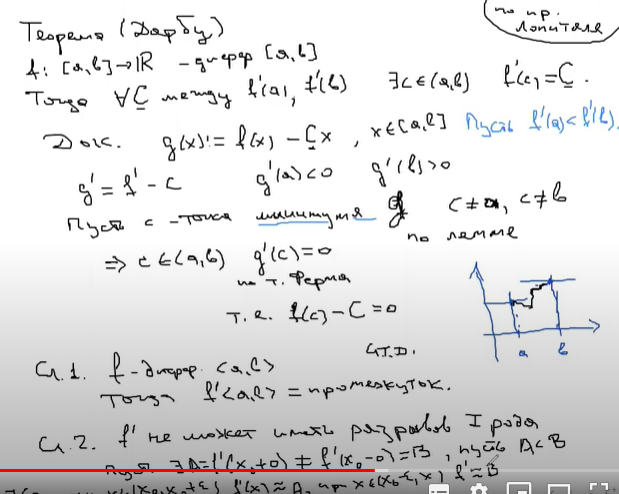 по пр.
Лопиталя
Теорема (Дарбу)
f: [a,b]→ℝ - дифер [a,b]
Тогда ∀C между f'(a), f'(b) ∃c∈(a,b) f'(c)=C.
Док. g(x):= f(x) - Cx, x∈[a,b] Пусть f'(a)<f'(b).
g' = f' - C g'(a)<0 g'(b)>0
Пусть c - точка минимума g c≠a, c≠b
по лемме
⇒ c∈(a,b) g'(c)=0
по т. Ферма
т.е. f'(c) - C = 0
ч.т.д.
a b
Сл.1. f - дифер. <a,b>
Тогда f'<a,b> = промежуток.
Сл.2. f' не может иметь разрывов I рода
Пусть ∃A=f'(x₀+0) ≠ f'(x₀-0)=B, пусть A<B
f'(x)≈A, при x∈(x₀-ε, x) f'≈B